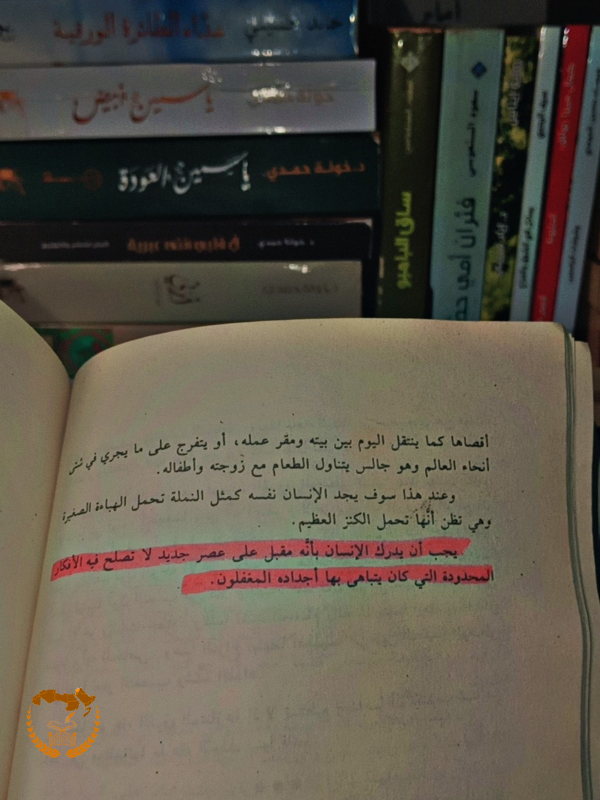 أمام
خالد الحسيني عداء الطائرة الورقية
خولة حمدي ياسين أبيض
د. خولة حمدي ياسين العودة
د. خولة حمدي في قلبي أنثى عبرية
ساق البامبو
سعود السنعوسي فئران أمي حصة
أقصاها كما ينتقل اليوم بين بيته ومقر عمله، أو يتفرج على ما يجري في شتى
أنحاء العالم وهو جالس يتناول الطعام مع زوجته وأطفاله.
وعند هذا سوف يجد الإنسان نفسه كمثل النملة تحمل الهباءة الصغيرة
وهي تظن أنَّها تحمل الكنز العظيم.
يجب أن يدرك الإنسان بأنَّه مقبل على عصر جديد لا تصلح فيه الأفكار
المحدودة التي كان يتباهى بها أجداده المغفلون.